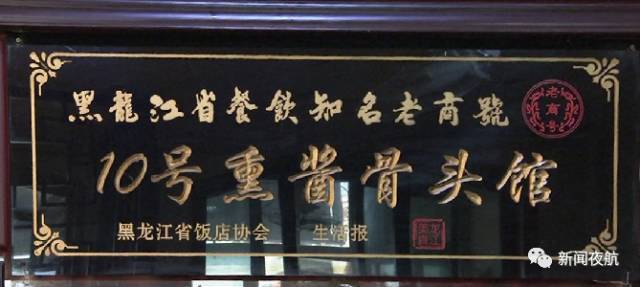 黑龍江省餐飲知名老商號
老商号
10号熏酱骨头馆
黑龙江省饭店协会 生活报
新闻夜航